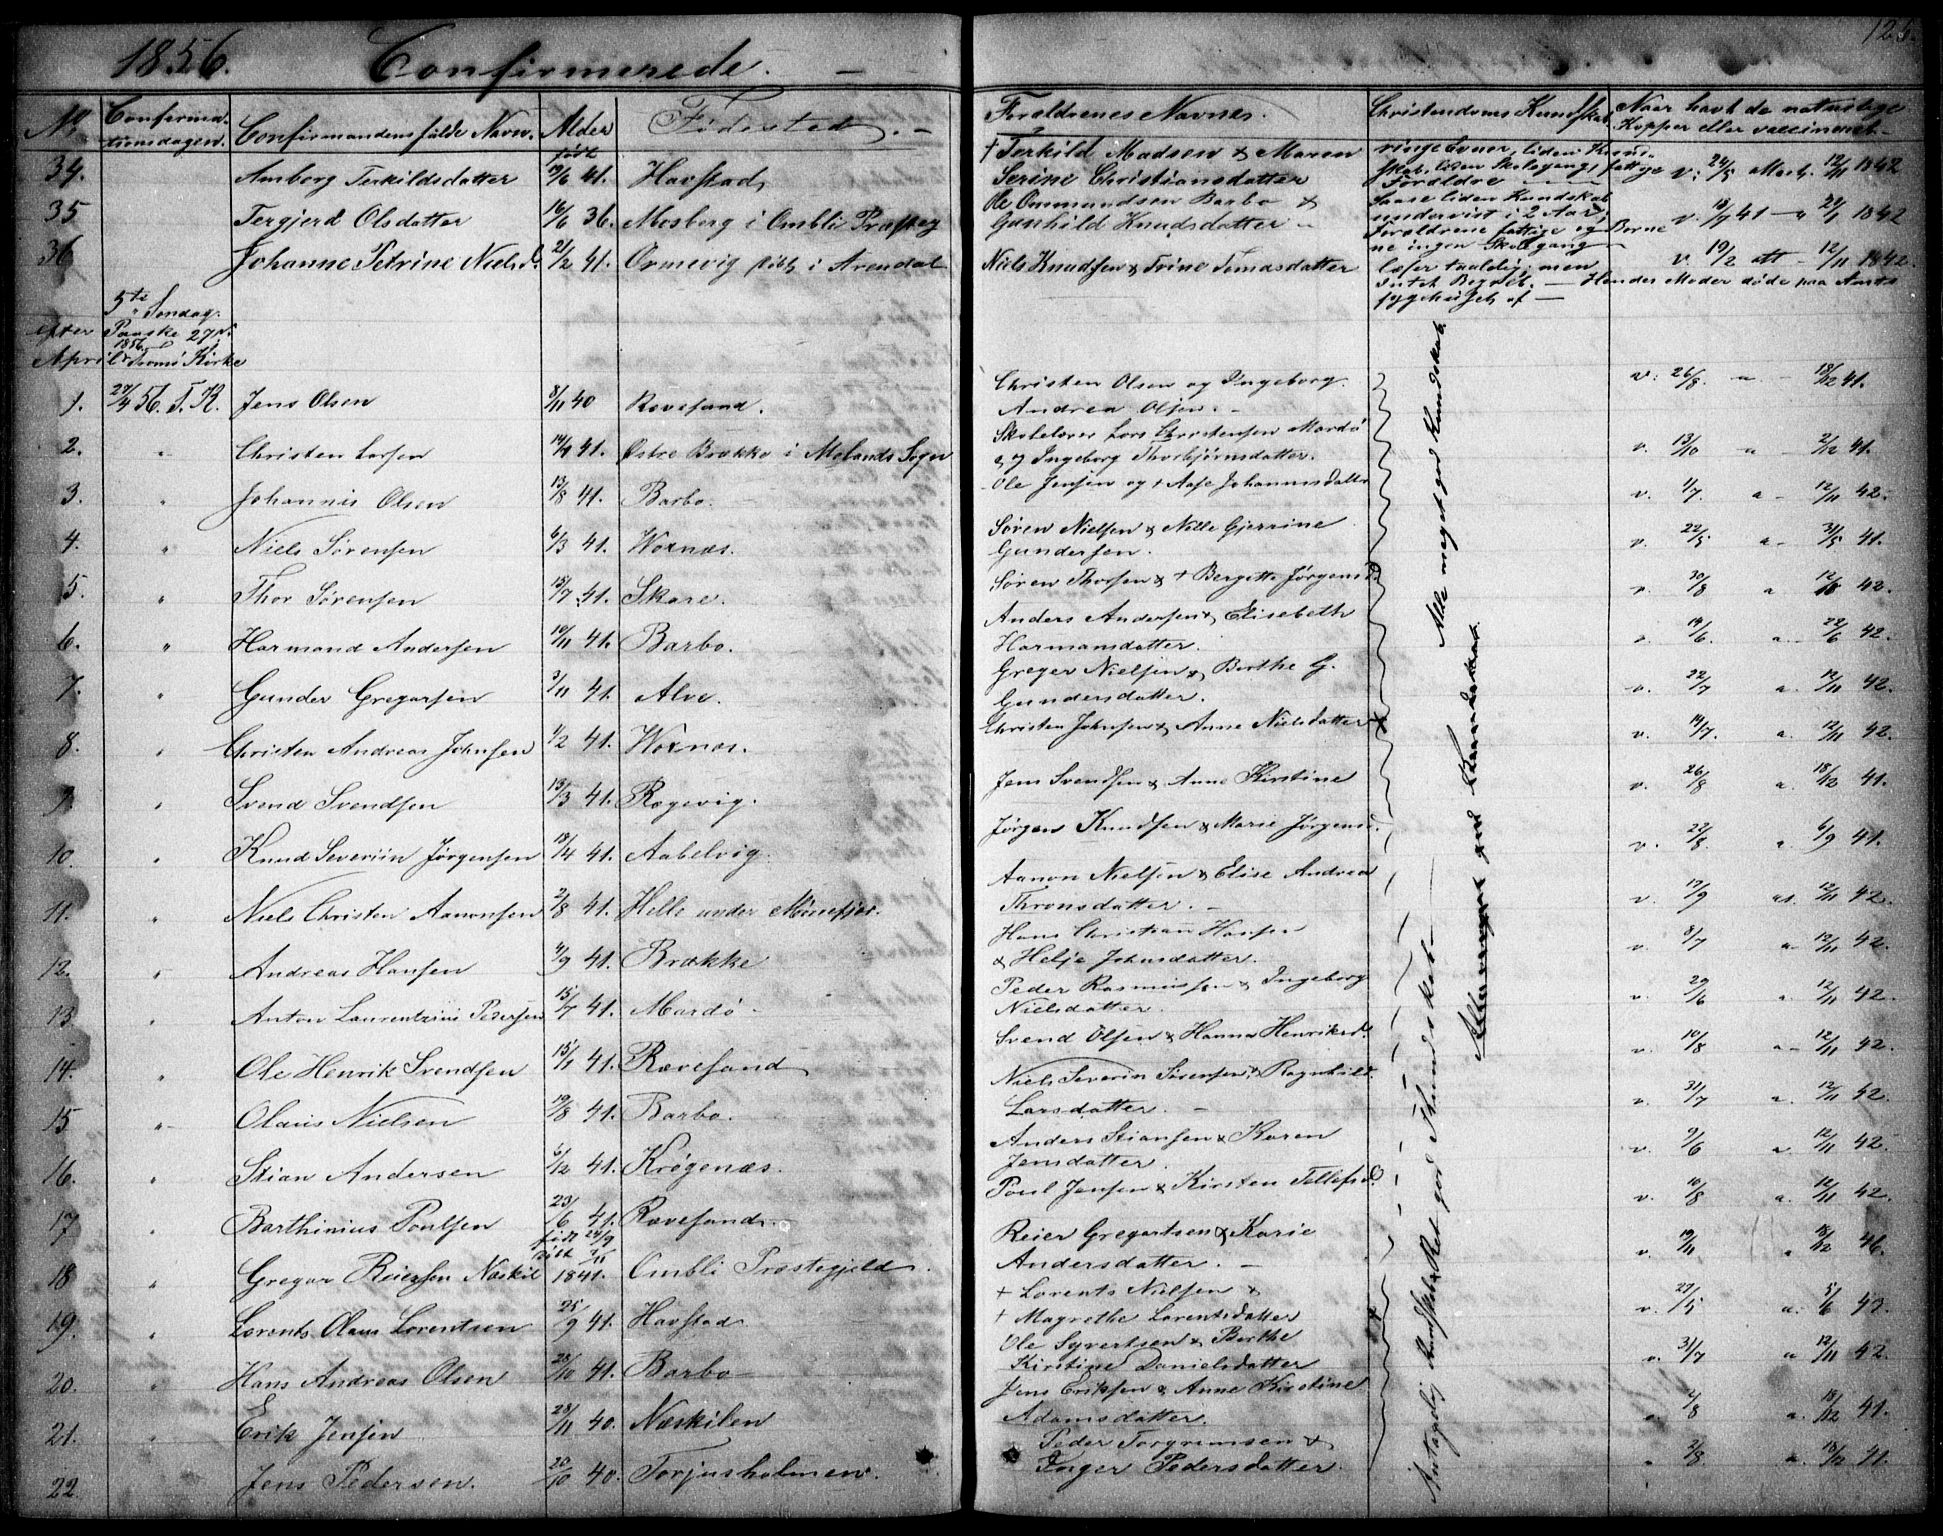 1856. Confirmerede. 125.
No Confirma-tionsdagen. Confirmandens fulde Navn. Alder Fødested. Forældrenes Navne. Christendoms Kundskab. Naar havt de naturlige Kopper eller vaccineret.
34. Amborg Terkildsdatter født 19/6 41. Havstad † Terkild Madsen & Maren
Serine Christiansdatter ringe Evner, liden Kund-
skab, liden Skolegang, fattige
Forældre v: 24/5 Mart. 12/11 1842
35 Tergjerd Olsdatter 16/6 36. Mosberg i Ombli Præsteg Ole Ommundsen Barbo &
Gunhild Knudsdatter liden Kundskab
undervist i 2 Aar,
Forældrene fattige og Børne
ne ingen Skolegang v. 18/7 41 a 24/1 1842
36 Johanne Petrine Nielsd. 21/2 41. Ormevig født i Arendal Niels Knudsen & Trine Tomasdatter læser taalelig; men
intet Begreb. — Hendes Moder døde paa Amts
sygehuset af — v. 19/2 att - 12/11 1842.
5te Søndag
efter Paaske 27de
April 1856 Tromø Kirke
1. 27/4 56. T. K. Jens Olsen 8/11 40 Revesand. Christen Olsen og Ingeborg
Andrea Olsen. v: 26/8 a 18/12 41.
2. " Christen Larsen 14/4 41. Østre Brække i Molands Sogn Skolelærer Lars Christensen Mardø
og Ingeborg Thorbjørnsdatter. v. 13/10 a 2/12 41.
3. " Johannis Olsen 13/8 41. Barbo. Ole Jensen og † Aase Johannisdatter v. 1/7. a 12/11 42.
4. " Niels Sørensen 6/3 41. Woxnæs. Søren Nielsen & Nille Gjerrine
Gundersen. v. 22/5 a 31/5 41.
5. " Thor Sørensen 15/7 41. Skare. Søren Thorsen & † Bergette Jørgensd. v. 30/8 a 12/10 42.
6. " Harmand Andersen 10/11 41. Barbo. Anders Andersen & Elisebeth
Harmansdatter. v. 14/6. a 22/6 42.
7. " Gunder Gregersen 3/11 41. Alve. Greger Nielsen & Berthe G.
Gundersdatter. v. 22/7 a. 12/11 42.
8. " Christen Andreas Johnsen 1/2 41. Woxnæs. Christen Johnsen & Anne Nielsdatter v. 14/7. a. 12/11 42.
9. " Svend Svendsen 13/3 41. Rægevig. Jens Svendsen & Anne Kirstine v. 26/8 a. 18/12 41.
10. " Knud Severiin Jørgensen 18/4 41. Aabelvig. Jørgen Knudsen & Marie Jørgensd. v. 22/8 a 6/9 41.
11. " Niels Christen Aanonsen 2/8 41. Helle under Mønefjer. Aanon Nielsen & Elise Andrea
Thronsdatter. v. 17/9 a. 12/11 42.
12. " Andreas Hansen 4/9 41. Brække Hans Christian Hansen
& Helje Johnsdatter. v. 8/7 a 12/11 42.
13. " Anton Laurentzius Pedersen 15/7 41. Mardø Peder Rasmussen & Ingeborg
Nielsdatter. v. 29/6 a 12/11 42.
14. " Ole Henrik Svendsen 15/1 41. Revesand Svend Olsen & Hanna Henriksd. v. 10/8 a 12/11 42.
15 " Olaus Nielsen 19/8 41. Barbo. Niels Severin Sørensen & Ragnhild
Larsdatter. v. 31/7 a. 12/11 42.
16. " Stian Andersen 6/12 41. Krøgenæs. Anders Stiansen & Karen
Jensdatter. v. 9/6 a. 12/11 42.
17 " Barthinius Poulsen 23/6 41. Revesand. Poul Jensen & Kirsten Tellefsd. v. 10/8 a. 12/11 42.
18 " Greger Reiersen Næskil født 24/9 døbt 7/11 1841. Ombli Præstegjeld. Reier Gregertsen & Karie
Andersdatter. v. 19/11 a 18/12 46.
19. " Lorents Olaus Lorentsen 25/9 41. Havstad † Lorents Nielsen &
† Magrethe Lorentsdatter v. 27/5 a. 5/6 42.
20. " Hans Andreas Olsen 28/10 41. Barbo Ole Syvertsen & Berthe
Kirstine Danielsdatter v. 31/7 a 12/11 42.
21. " Erik Jensen 28/11 40. Næskilen Jens Eriksen & Anne Kirstine
Adamsdatter. v. 4/8 a. 18/12 41.
22. Jens Pedersen. 20/10 40. Torjusholmen. Peder Torgrimsen &
Inger Pedersdatter. " 2/8 a. 18/12 41.
Alle meget god Kundskab.
Antagelig Kundskab & Ret god Flindskab